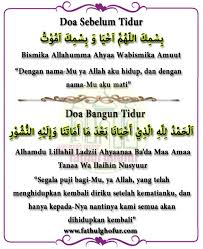 Doa Sebelum Tidur
بِسْمِكَ اللّٰهُمَّ اَحْيَا وَ بِسْمِكَ اَمُوْتُ
Bismika Allahumma Ahyaa Wabismika Amuut
“Dengan nama-Mu ya Allah aku hidup, dan dengan
nama-Mu aku mati”
Doa Bangun Tidur
اَلْحَمْدُ لِلّٰهِ الَّذِيْ اَحْيَانَا بَعْدَ مَا اَمَاتَنَا وَاِلَيْهِ النُّشُوْرُ
Alhamdu Lillahil Ladzii Ahyaanaa Ba'da Maa Amaa
Tanaa Wa Ilaihin Nusyuur
“Segala puji bagi-Mu, ya Allah, yang telah
menghidupkan kembali diriku setelah kematianku, dan
hanya kepada-Nya nantinya kami semua akan
dihidupkan kembali”
www.fathulghofur.com